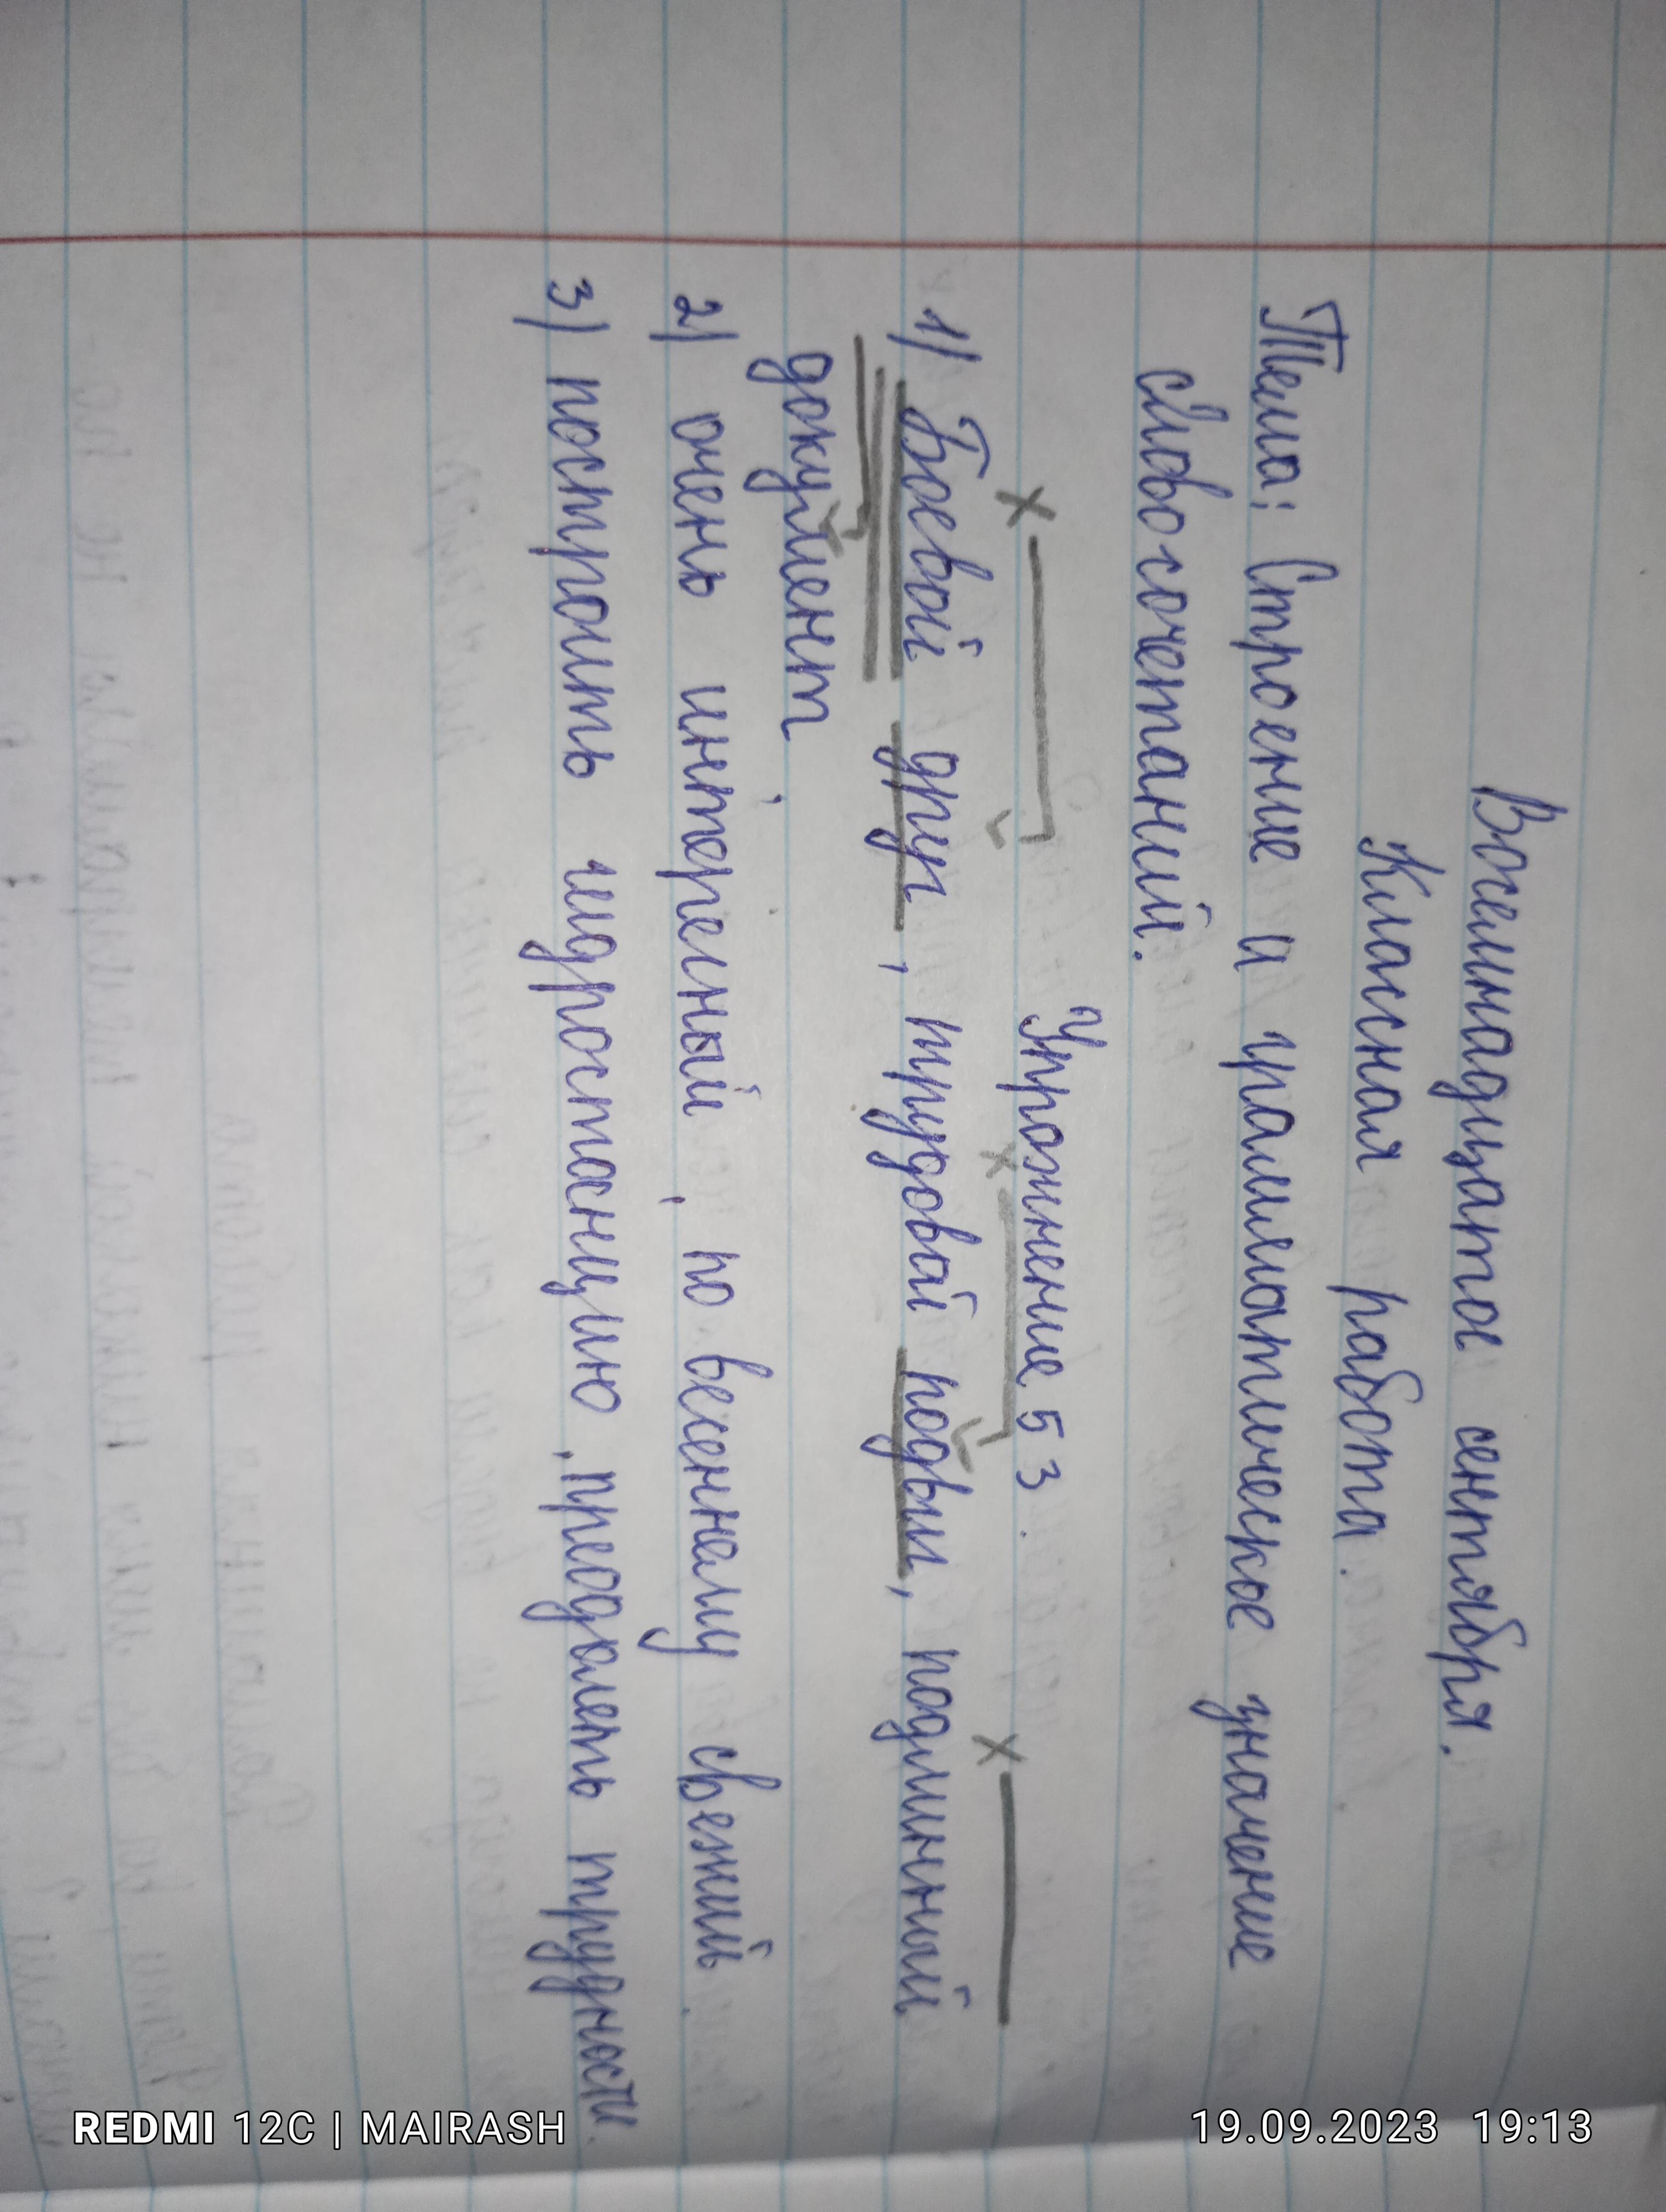 Восемнадцатое сентября.
Класная работа.
Тема: Строение и грамматическое значение
словосочетаний.
Упражнение 53.
1) Боевой друг, трудовой подвиг, подлинный
документ
2) очень интересный, по весеннему свежий.
3) построить гидростанцию, преодолеть трудности.
REDMI 12C | MAIRASH
19.09.2023 19:13